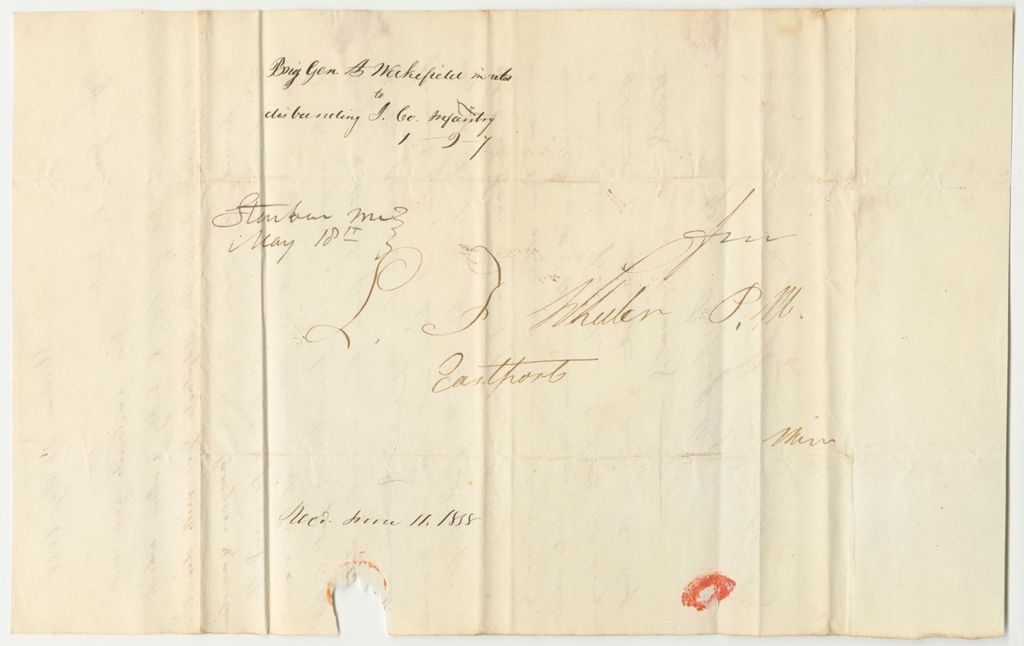 Brig Gen B Wakefield in reles
to
disbanding I. Co. Infantry
1 - 9 - 7
Steuben Me
May 18th
free
L. F. Wheeler P. M.
Eastport
Maine
Recd. June 11. 1838